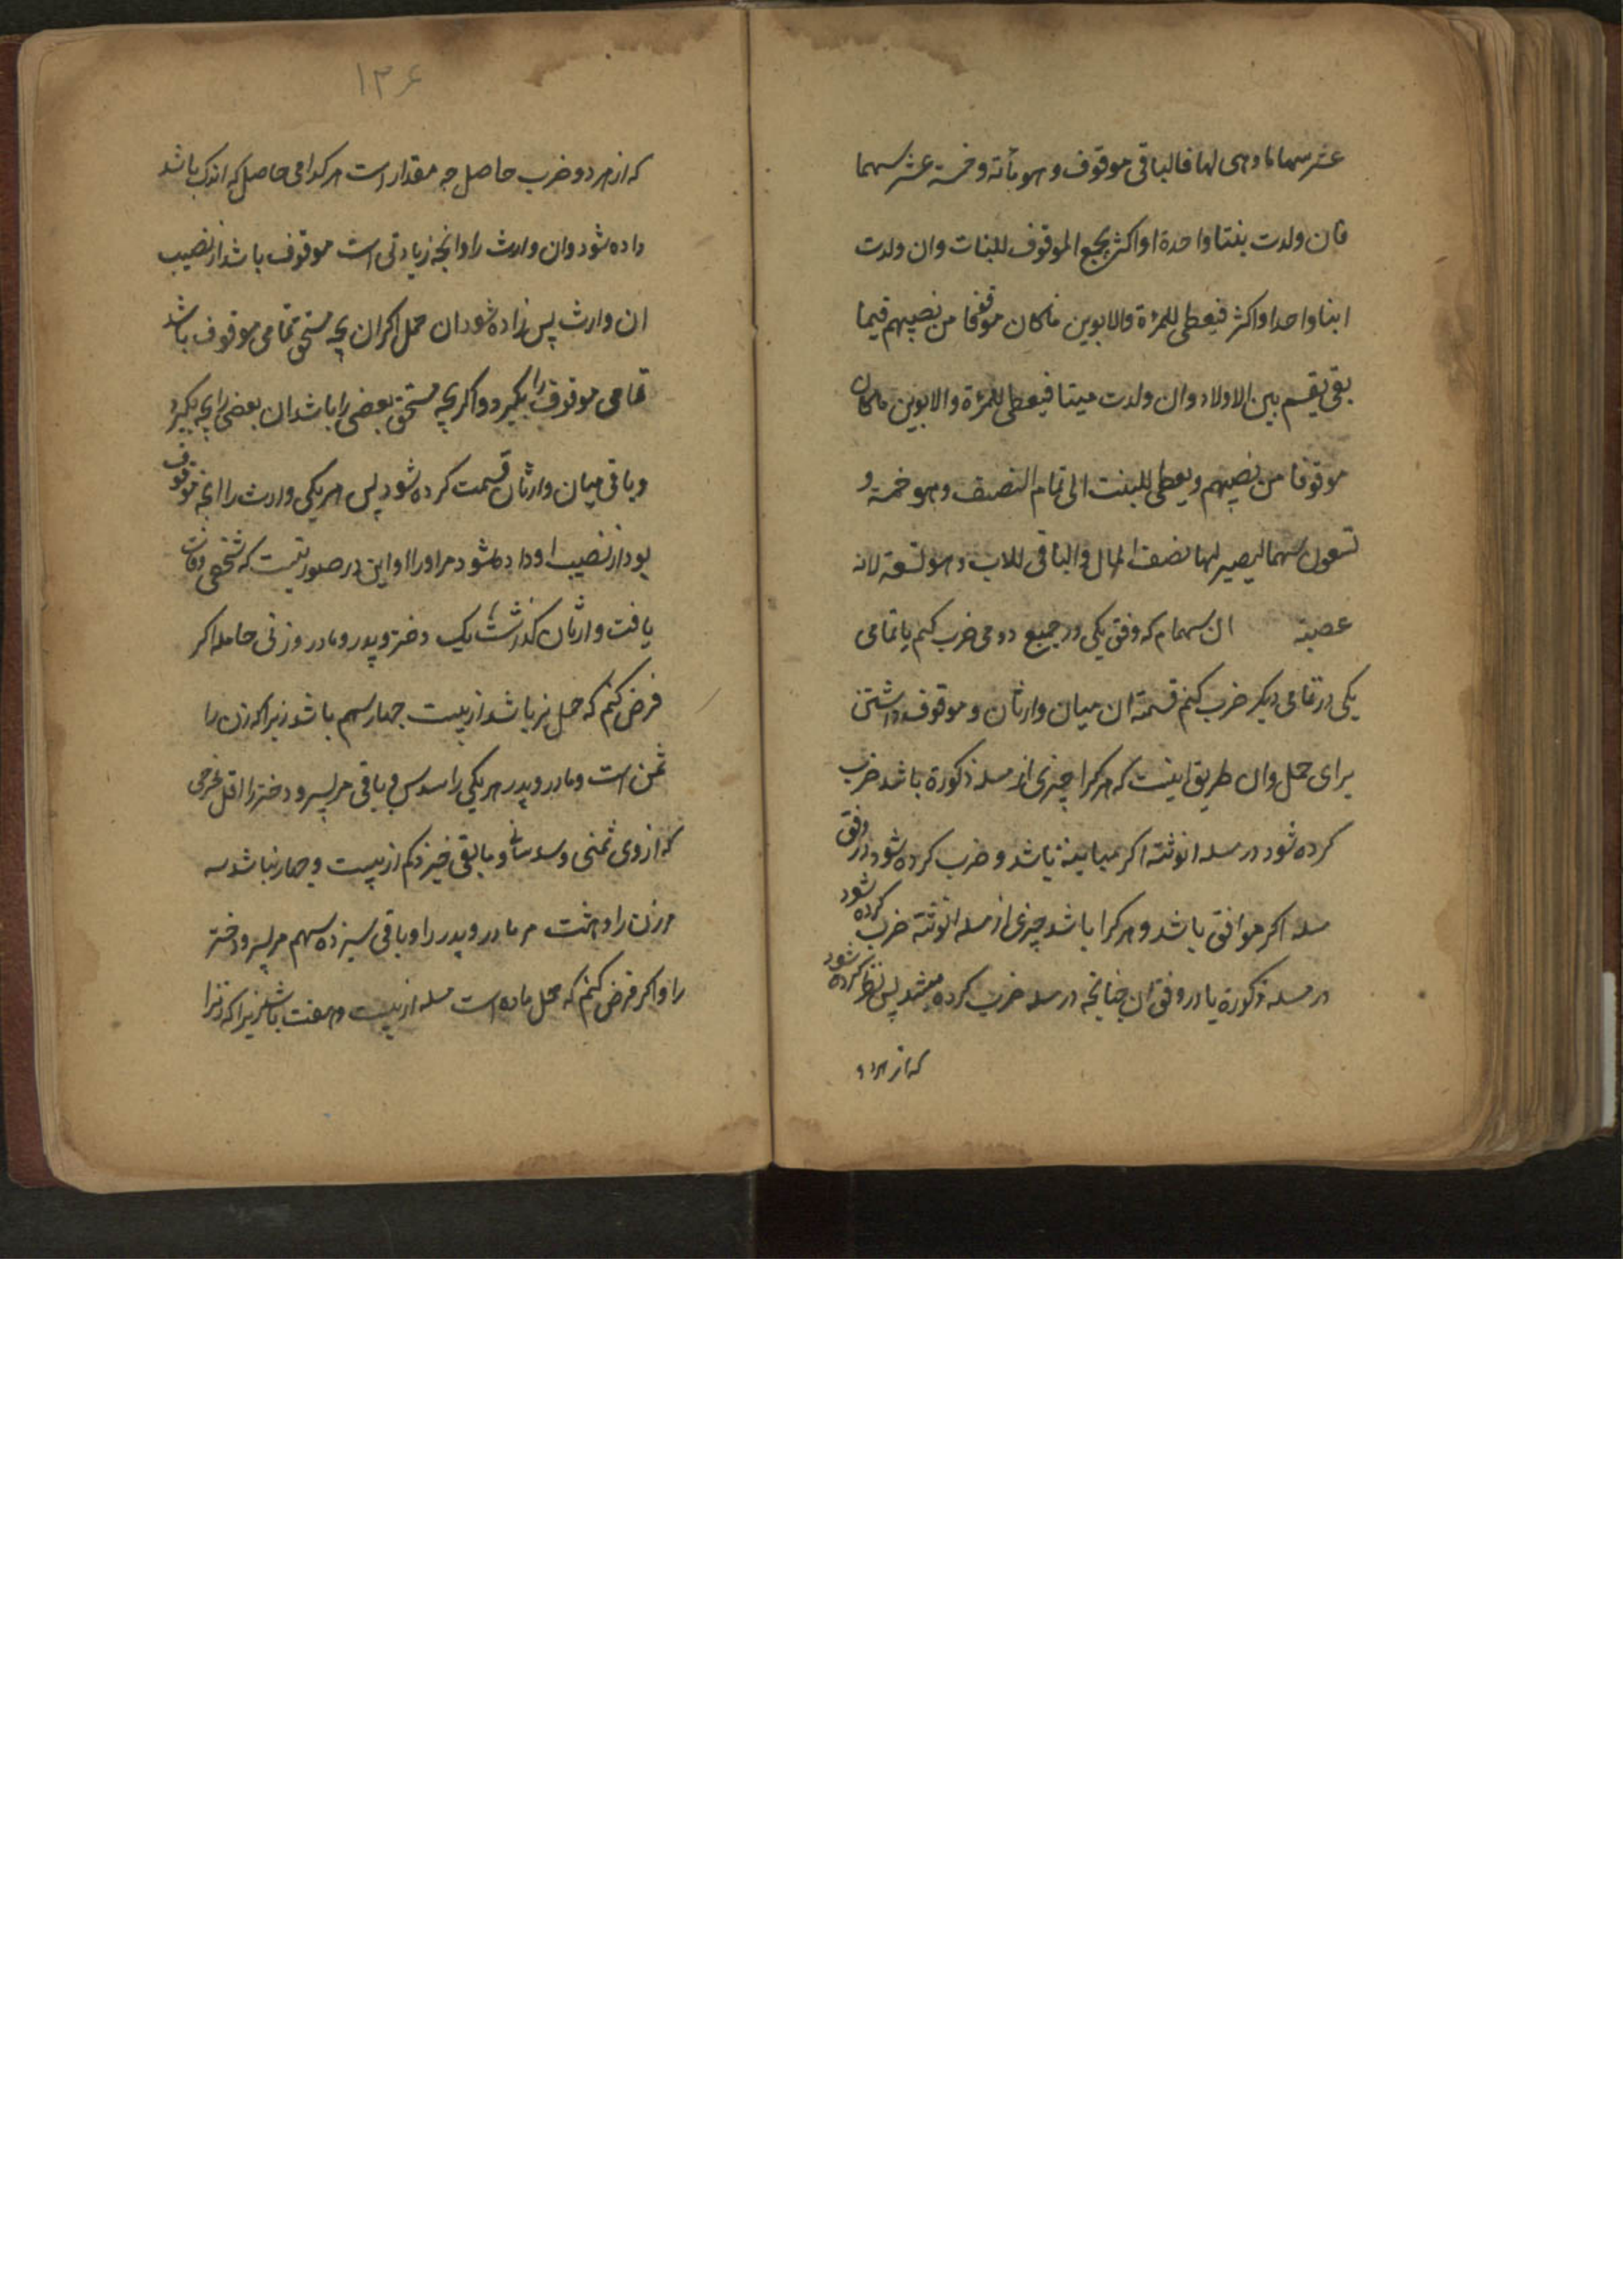 عشر سهما ناوهی لها فالباقی موقوف وهو مائة وخمسة عشر سهما
فان ولدت بنتا واحدة او اکثر بجمیع الموقوف للبنات وان ولدت
ابنا واحدا واکثر فیعطی للمرٔة والابوین ماکان موقوفا من نصیبهم فیما
بقی یقسم بین الاولاد وان ولدت میتا فیعطی للمرٔة والابوین ماکان
موقوفا من نصیبهم ویعطی للبنت الی تمام النصف وهو خمسة و
تسعون سهما لیصیر لها نصف المال والباقی للاب وهو تسعة لانه
عصبة ان سهام که وفق یکی در جمیع دومی ضرب کنم یا تمامی
یکی در تمامی دیکر ضرب کنم قسمة ان میان وارثان و موقوف داشتن
برای حمل وان طریق اینست که هر کرا چیزی از مسله ذکورة باشد ضرب
کرده شود در مسله انوثته اکر مباینة باشد و ضرب کرده شود در وفق
مسله اکر موافق باشد و هر کرا باشد چیزی از مسله انوثته ضرب کرده شود
در مسله ذکورة یا در وفق ان چنانچه در مسله ضرب کرده میشد پس نظر کرده شود
که از هر دو
۱۳۶
که از هر دو ضرب حاصل چه مقدار است هر کدامی حاصل که اندک باشد
داده شود وان وارث را وانچه زیادتی است موقوف باشد از نصیب
ان وارث پس زاده شود ان حمل اکر ان بچه مستحق تمامی موقوف باشد
تمامی موقوف را بکیرد و اکر بچه مستحق بعضی را باشد ان بعضی را بچه بکیرد
و باقی میان وارثان قسمت کرده شود پس هر یکی وارث را انچه موقوف
بود از نصیب او داده شود مر او را و این در صورتیست که شخصی وفات
یافت و وارثان کذاشت یک دختر و پدر و مادر و زنی حامله اکر
فرض کنم که حمل نر باشد از بیست چهار سهم باشد زیرا که زن را
ثمن است و مادر و پدر هر یکی را سدس و باقی مر پسر و دختر را اقل مخرجی
که از وی ثمنی و سدسانی و مابقی خیزد کم از بیست و چهار نباشد سه
مر زن را و هشت مر مادر و پدر را و باقی سیزده سهم مر پسر و دختر
را و اکر فرض کنم که حمل ماده است مسله از بیست و هفت باشد زیرا که زنرا